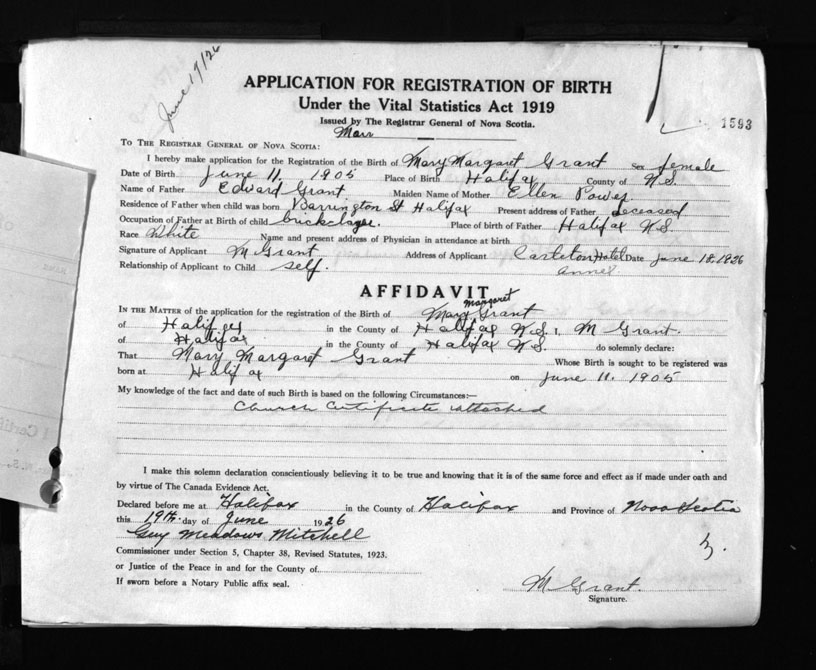 June 19/26
APPLICATION FOR REGISTRATION OF BIRTH
Under the Vital Statistics Act 1919
Issued by The Registrar General of Nova Scotia.
1593
TO THE REGISTRAR GENERAL OF NOVA SCOTIA:
I hereby make application for the Registration of the Birth of Mary Margaret Grant Sex female
Date of Birth June 11, 1905 Place of Birth Halifax County of N.S.
Name of Father Edward Grant Maiden Name of Mother Ellen Power
Residence of Father when child was born Barrington St Halifax Present address of Father deceased
Occupation of Father at Birth of child bricklayer. Place of birth of Father Halifax N.S.
Race White Name and present address of Physician in attendance at birth
Signature of Applicant M Grant Address of Applicant Carleton Hotel Date June 18. 1926
Relationship of Applicant to Child self.
AFFIDAVIT
Margaret
IN THE MATTER of the application for the registration of the Birth of Mary Grant
of Halifax in the County of Halifax N.S. I, M Grant.
of Halifax in the County of Halifax N.S. do solemnly declare:
That Mary Margaret Grant Whose Birth is sought to be registered was
born at Halifax on June 11. 1905
My knowledge of the fact and date of such Birth is based on the following Circumstances:—
Church Certificate attached
I make this solemn declaration conscientiously believing it to be true and knowing that it is of the same force and effect as if made under oath and
by virtue of The Canada Evidence Act.
Declared before me at Halifax in the County of Halifax and Province of Nova Scotia
this 19th day of June 1926
Guy Meadows Mitchell
Commissioner under Section 5, Chapter 38, Revised Statutes, 1923.
or Justice of the Peace in and for the County of
If sworn before a Notary Public affix seal.
M Grant.
Signature.